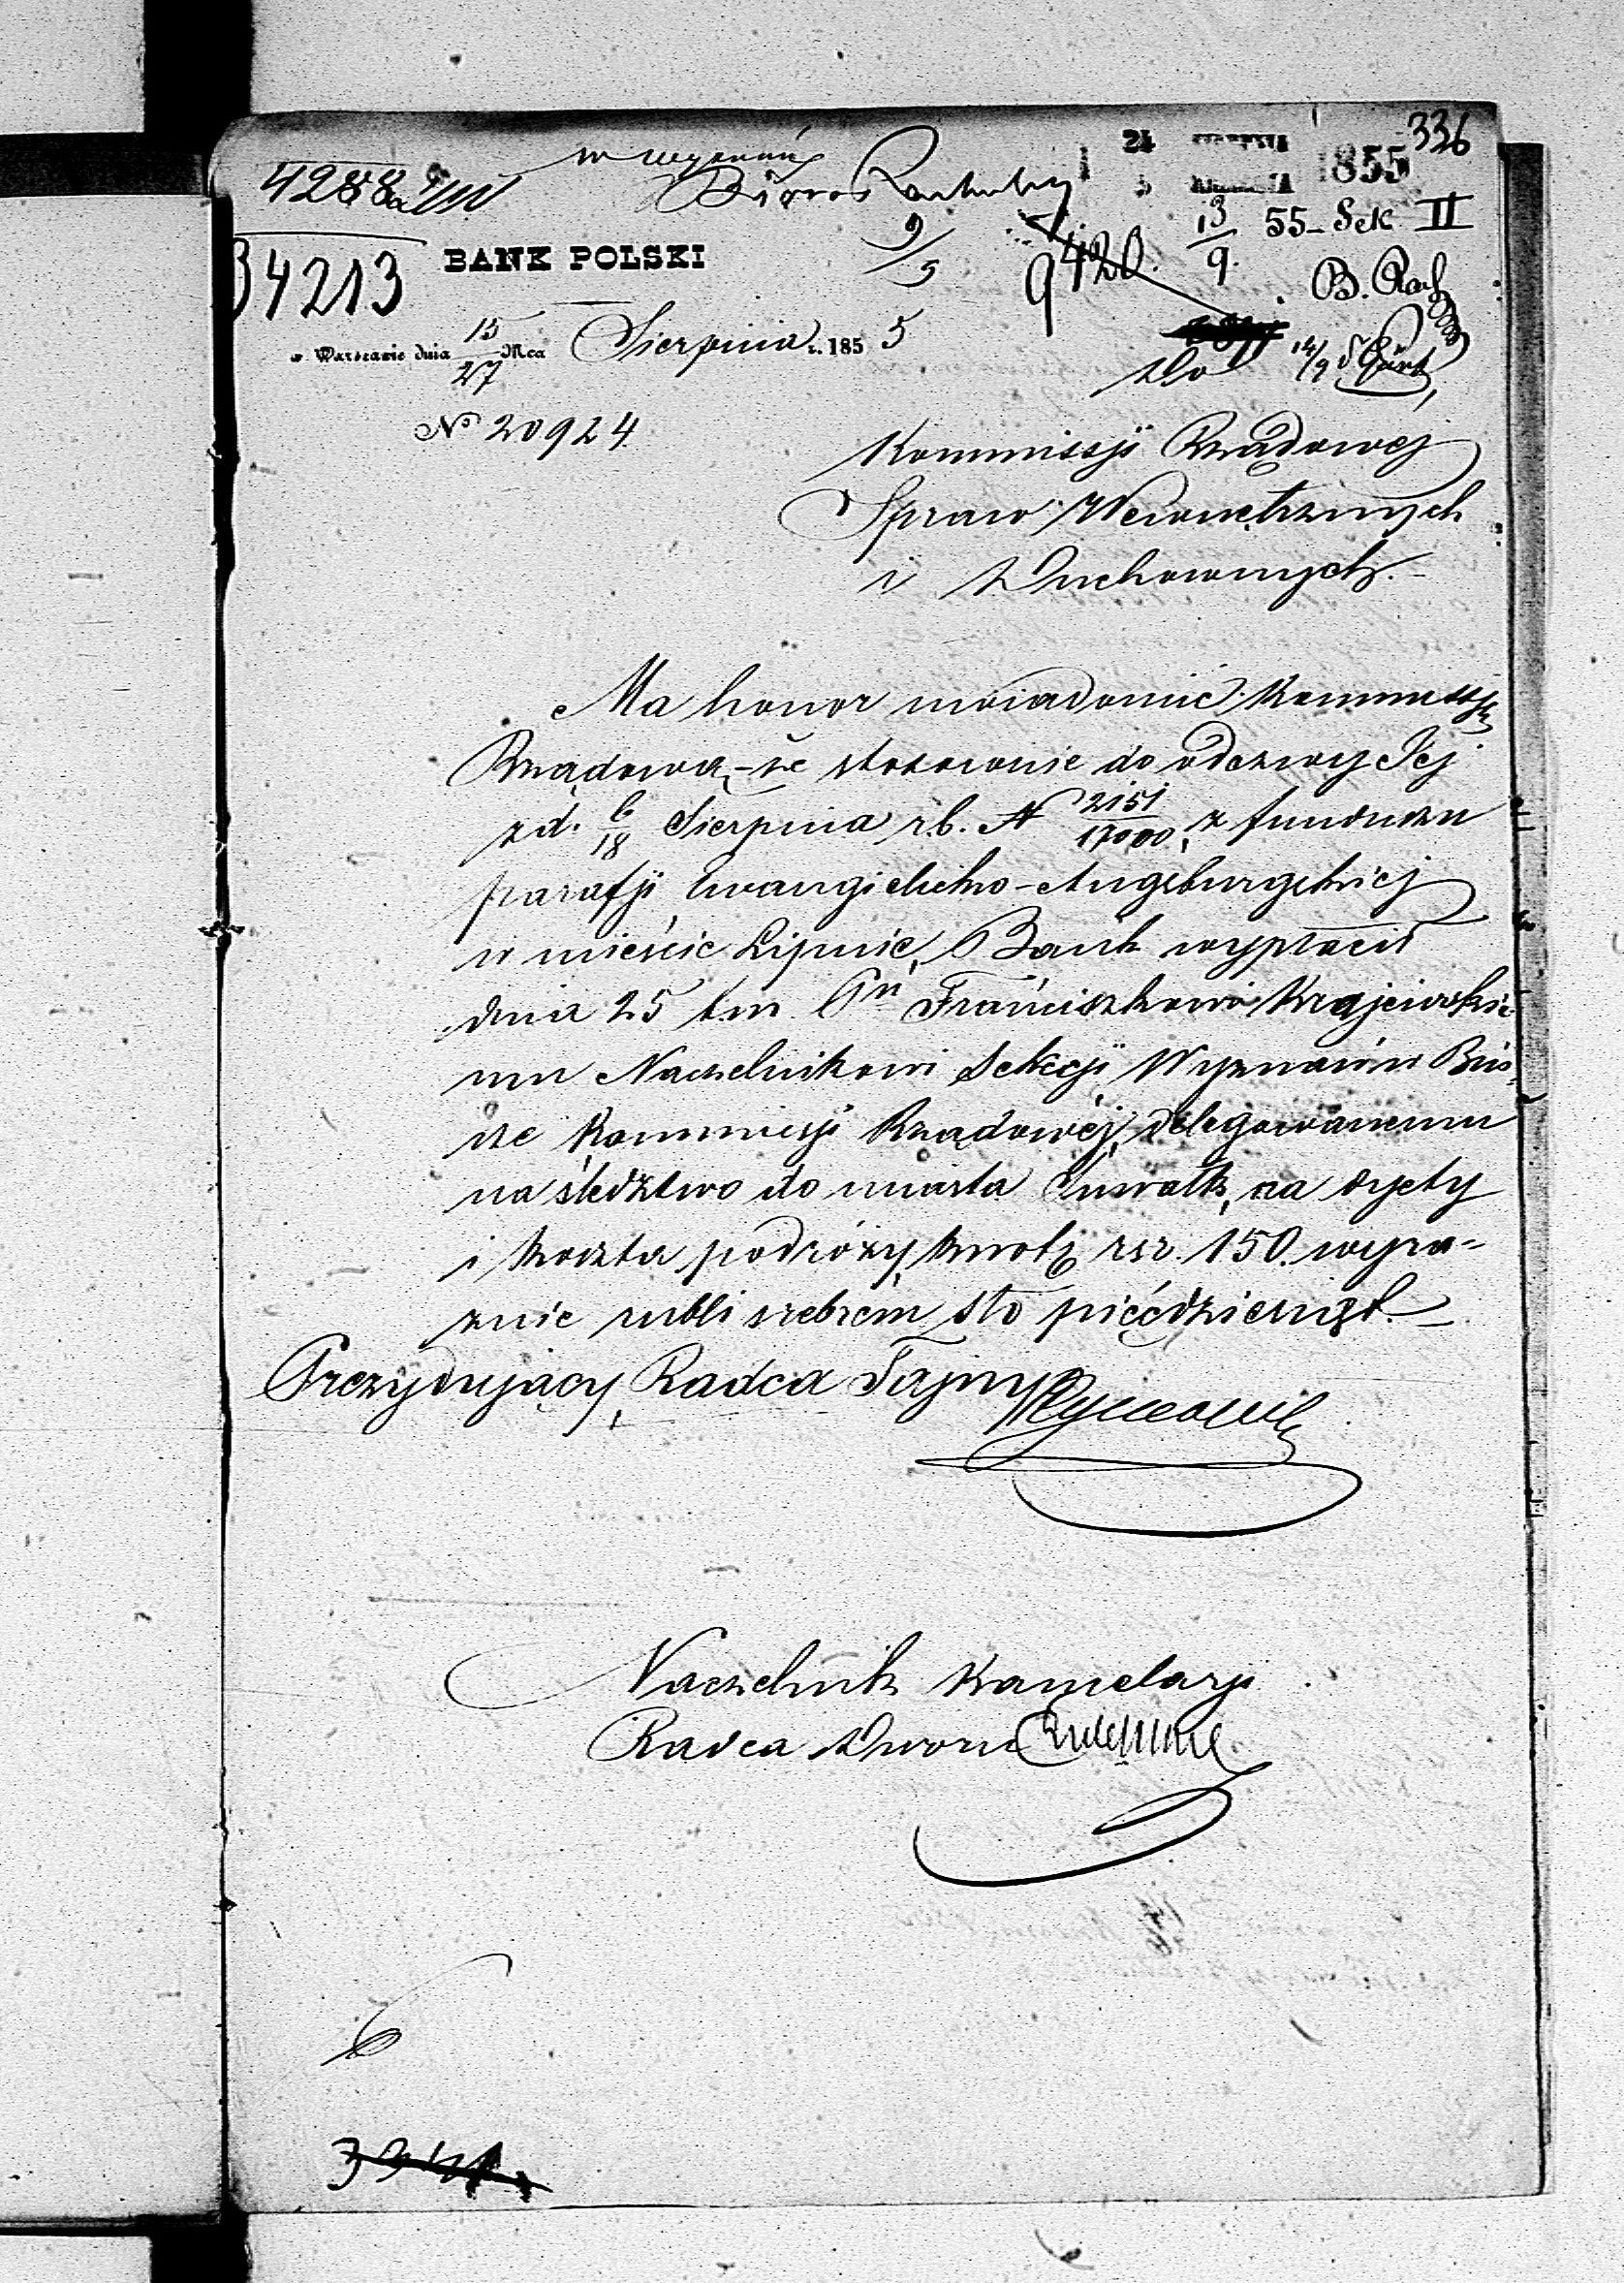 336
4288
24 SIERPNIA 1855
34213
BANK POLSKI
9/5
9420.
13/9. 55 - Sek II
w Warszawie dnia 15/27 Mca Sierpnia r. 1855
14/9
Do
No 20924
Kommissji Rządowej
Spraw Wewnętrznych
i Duchownych.
Ma honor uwiadomić Kommissję
Rządową, że stosownie do odezwy Jej
z d. 6/18 Sierpnia r.b. N 2151/17000, z funduszu
parafji Ewangielicko-Augsburgskiej
w mieście Lipnie, Bank wypłacił
dnia 25 t.m. Pu Franciszkowi Krajewskie-
mu Naczelnikowi Sekcji Wyznań w Biu-
rze Kommissji Rządowéj, delegowanemu
na śledztwo do miasta Suwałk, na dyety
i koszta podróży, kwotę rsr. 150. wyra-
źnie rubli srebrem sto pięćdziesiąt.
Prezydujący, Radca Tajny
Naczelnik Kancelarji
Radca Dworu